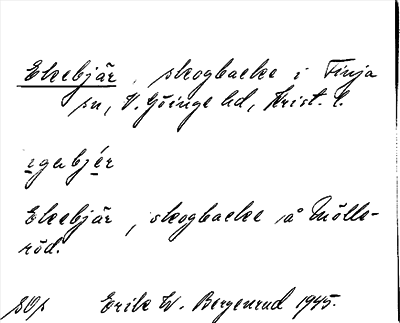 Ekebjär, skogbacke i Finja
sn, V. Göinge hd, Krist. l.
egebjér
Ekebjär, skogbacke å Mölle-
röd.
SOp Erik W. Bergenrud 1945.